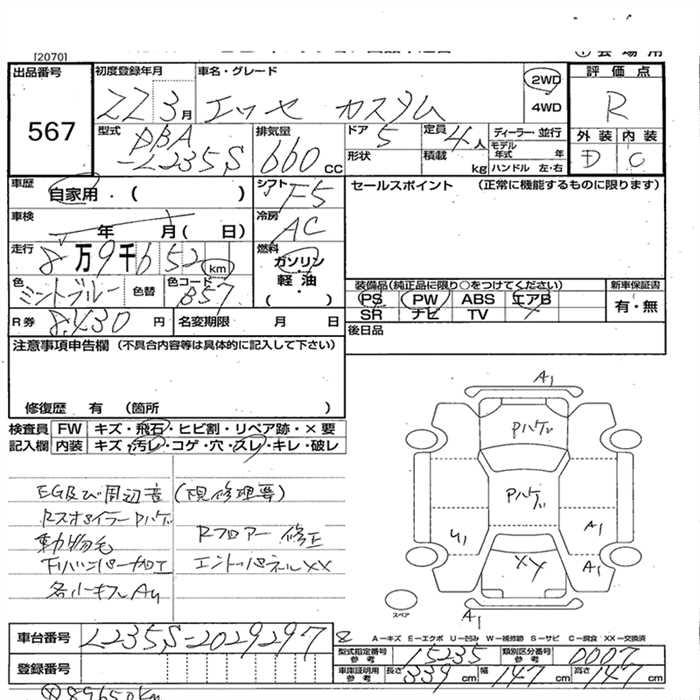 [2070]
会場用
出品番号
567
初度登録年月
22 3月
車名・グレード
エッセ カスタム
2WD
4WD
評価点
R
型式
DBA
-L235S
排気量
660cc
ドア
5
定員
4人
形状
積載
kg
ディーラー・並行
モデル
年式 年
ハンドル 左・右
外装 内装
D C
車歴
自家用・( )
シフト
F5
セールスポイント (正常に機能するものに限ります)
車検
年 月( 日)
冷房
AC
走行
8万9千652 km
燃料
ガソリン・
軽油・
( )
色
ミントブルー
色替
色コード
B57
装備品(純正品に限り○をつけてください)
PS PW ABS エアB
SR ナビ TV
新車保証書
有・無
R券 8,430円
名変期限 月 日
後日品
注意事項申告欄(不具合内容等は具体的に記入して下さい)
修復歴 有 (箇所 )
検査員
記入欄
FW キズ・飛石・ヒビ割・リペア跡・×要
内装 キズ・汚レ・コゲ・穴・スレ・キレ・破レ
EG及び周辺音(現修理要)
RスポイラーPハゲ
動物毛 Rフロアー修正
下廻バンパー加工 エンドパネルXX
各ルーキズAU
A1
Pハゲ
Pハゲ
U1
A1
XX
A1
A1
スペア
車台番号 L235S-2029297
登録番号
8
A-キズ E-エクボ U-凹み W-補修跡 S-サビ C-腐食 XX-交換済
型式指定番号
参考
15235
類別区分番号
参考
0007
車庫証明用
参考
長さ 339cm 幅 147cm 高さ 147cm
89650km